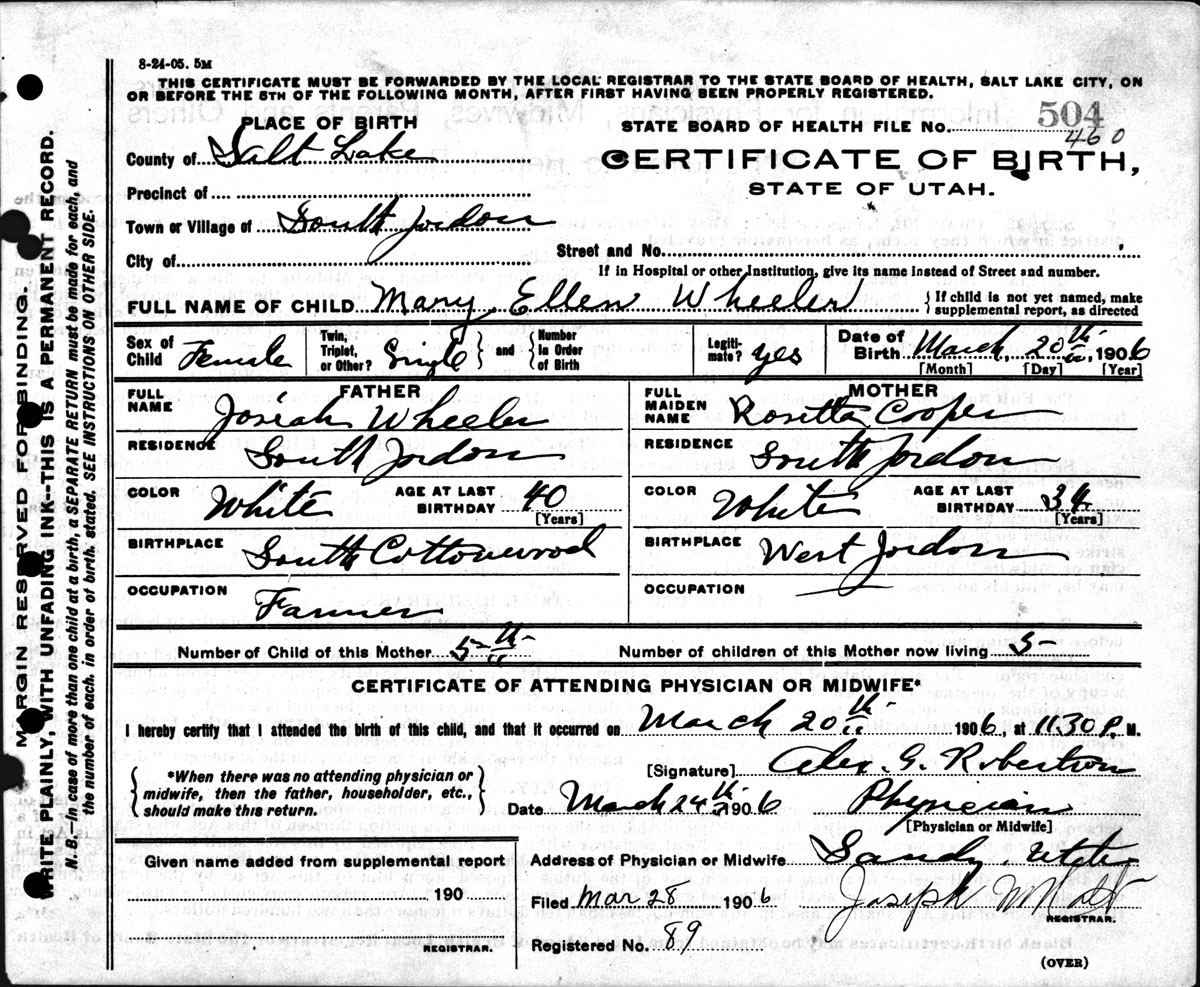 8-24-05. 5M
THIS CERTIFICATE MUST BE FORWARDED BY THE LOCAL REGISTRAR TO THE STATE BOARD OF HEALTH, SALT LAKE CITY, ON
OR BEFORE THE 5TH OF THE FOLLOWING MONTH, AFTER FIRST HAVING BEEN PROPERLY REGISTERED.
PLACE OF BIRTH
STATE BOARD OF HEALTH FILE No. 504
460
County of Salt Lake
CERTIFICATE OF BIRTH,
STATE OF UTAH.
Precinct of
Town or Village of South Jordon
City of
Street and No.
If in Hospital or other Institution, give its name instead of Street and number.
FULL NAME OF CHILD Mary Ellen Wheeler { If child is not yet named, make supplemental report, as directed
Sex of Child Female Twin, Triplet, or Other? Single } and { Number in Order of Birth Legiti- mate? yes Date of Birth March 20th, 1906
[Month] [Day] [Year]
FATHER
FULL NAME Josiah Wheeler
RESIDENCE South Jordon
COLOR White AGE AT LAST BIRTHDAY 40 [Years]
BIRTHPLACE South Cottonwood
OCCUPATION Farmer
MOTHER
FULL MAIDEN NAME Rosetta Cooper
RESIDENCE South Jordon
COLOR White AGE AT LAST BIRTHDAY 34 [Years]
BIRTHPLACE West Jordon
OCCUPATION
Number of Child of this Mother 5th Number of children of this Mother now living 5
CERTIFICATE OF ATTENDING PHYSICIAN OR MIDWIFE*
I hereby certify that I attended the birth of this child, and that it occurred on March 20th 1906, at 11.30 P. M.
{ *When there was no attending physician or midwife, then the father, householder, etc., should make this return. }
[Signature] Alex. G. Robertson
Date March 24th 1906 Physician
[Physician or Midwife]
Given name added from supplemental report
190
REGISTRAR.
Address of Physician or Midwife Sandy, Utah
Filed Mar 28 1906. Joseph
REGISTRAR.
Registered No. 89
(OVER)
MARGIN RESERVED FOR BINDING.
WRITE PLAINLY, WITH UNFADING INK--THIS IS A PERMANENT RECORD.
N. B.--In case of more than one child at a birth, a SEPARATE RETURN must be made for each, and
the number of each, in order of birth, stated. SEE INSTRUCTIONS ON OTHER SIDE.